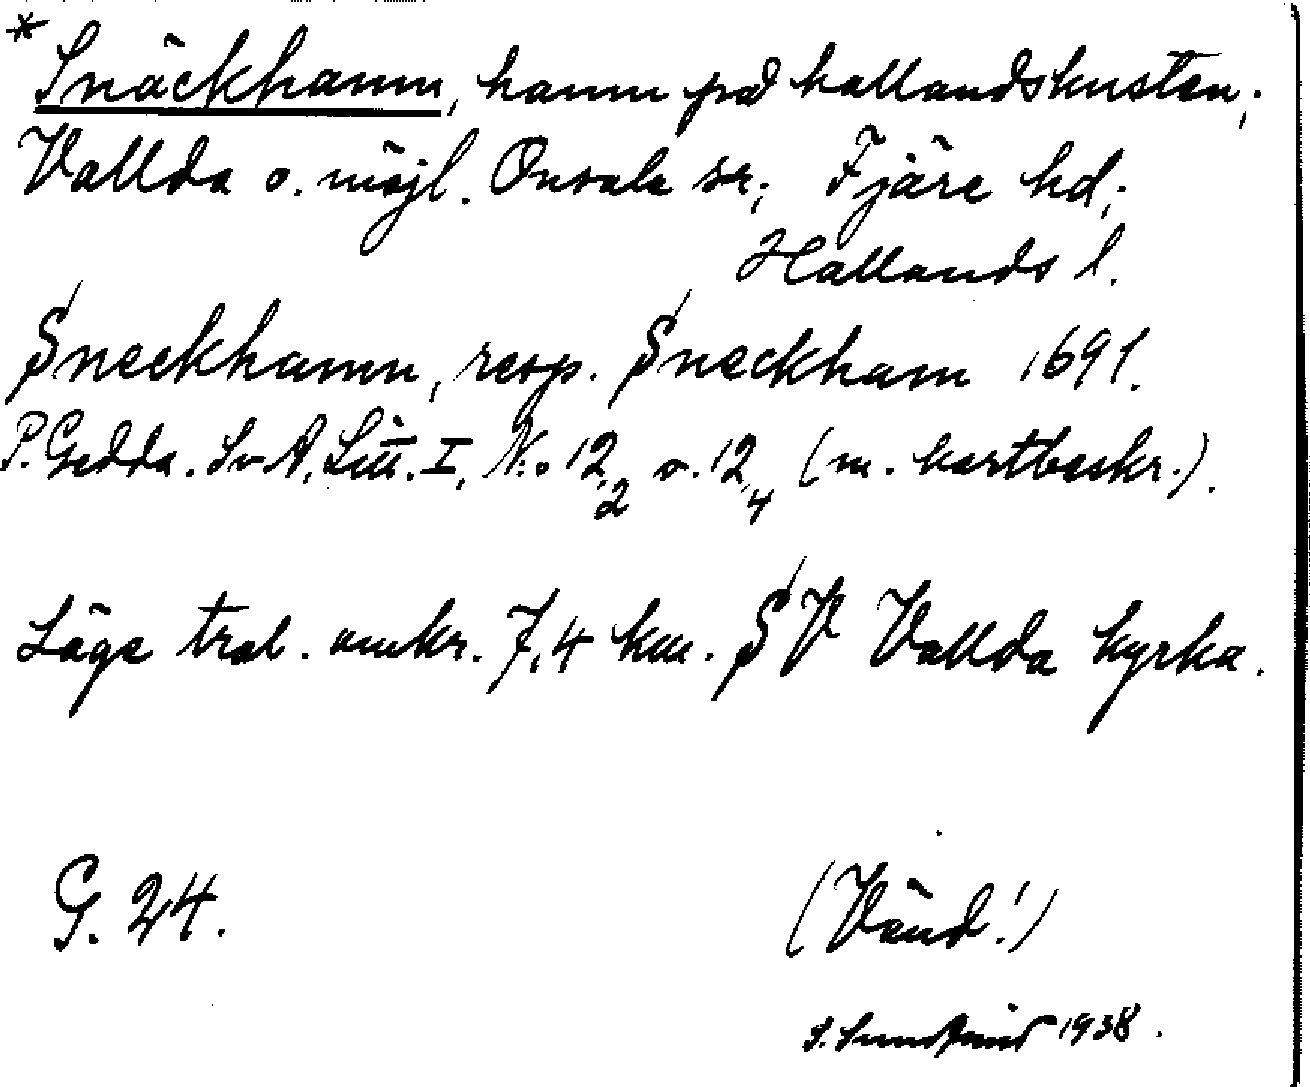 * Snäckhamn, hamn på hallandskusten;
Vallda o. möjl. Onsala sn; Fjäre hd;
Hallands l.
Sneckhamn, resp. Sneckham 1691.
P. Gedda. Sv A, Litt. I, N:o 12,2 o. 12,4 (m. kartbeskr.).
Läge trol. omkr. 7,4 km. SV Vallda kyrka.
G. 24.
(Vänd!)
S. 1938.